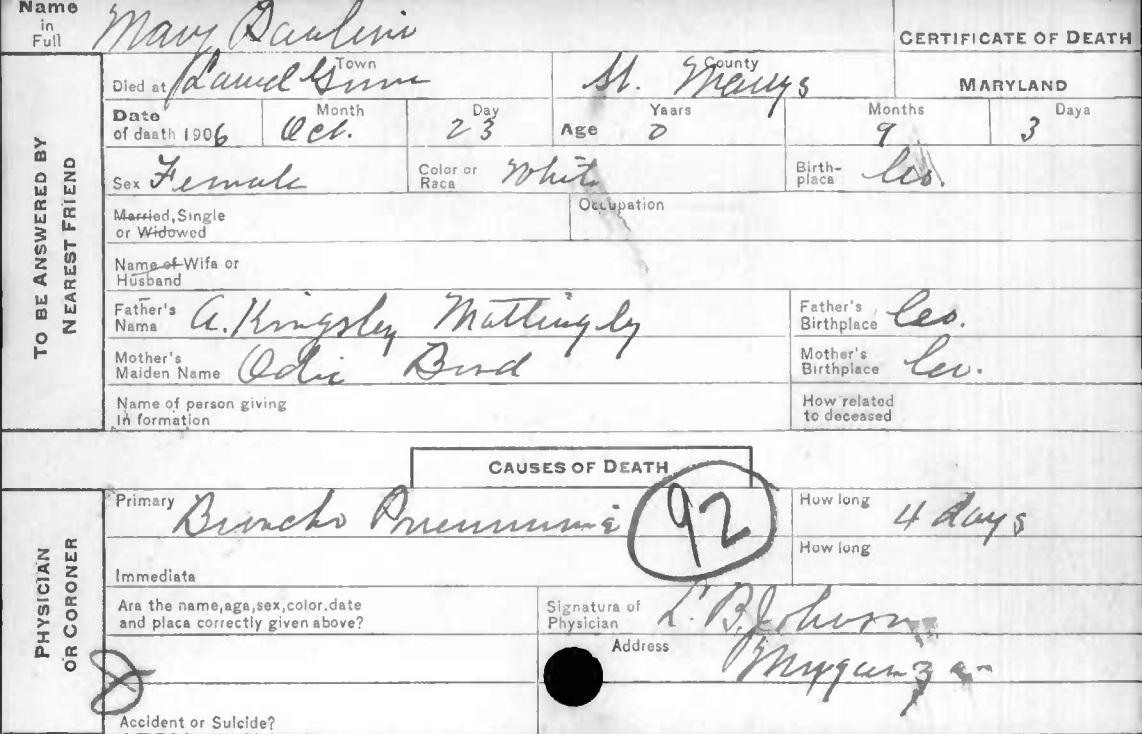 Name in Full Mary Pauline
CERTIFICATE OF DEATH
TO BE ANSWERED BY NEAREST FRIEND
Died at Laurel Grove Town St. Marys County MARYLAND
Date of daath 1906 Month Oct. Day 23 Age Yaars 0 Months 9 Daya 3
Sex Female Color or Raca White Birth-placa Co.
Married, Single or Widowed Occupation
Name of Wifa or Husband
Father's Name A. Kingsley Mattingly Father's Birthplace Co.
Mother's Maiden Name Odie Mother's Birthplace Co.
Name of person giving In formation How related to deceased
CAUSES OF DEATH
PHYSICIAN OR CORONER
Primary Broncho Pneumonia 92 How long 4 days
Immediata How long
Ara the name,aga,sex,color,date and placa correctly given above? Signatura of Physician L. B. Johnson
Address Morganza
Accident or Suicide?